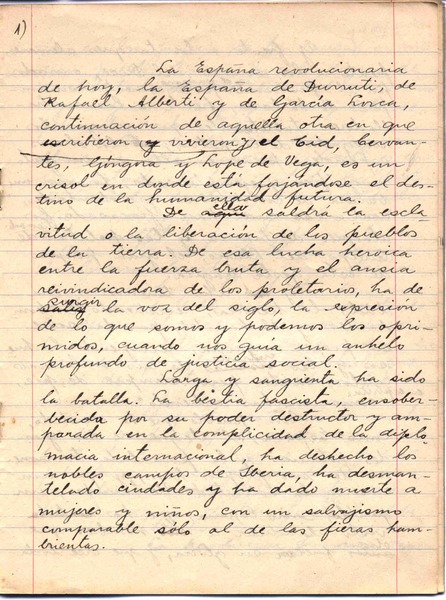 1)
La España revolucionaria
de hoy, la España de Durruti, de
Rafael Alberti y de García Lorca,
continuación de aquella otra en que
escribieron (y vivieron), el Cid, Cervan-
tes, Góngora y Lope de Vega, es un
crisol en donde está forjándose el des-
tino de la humanidad futura.
ella
De aquí saldrá la escla-
vitud o la liberación de los pueblos
de la tierra. De esa lucha heroica
entre la fuerza bruta y el ansia
reivindicadora de los proletarios, ha de
surgir
salir la voz del siglo, la expresión
de lo que somos y podemos los opri-
midos, cuando nos guía un anhelo
profundo de justicia social.
Larga y sangrienta ha sido
la batalla. La bestia fascista, ensober-
becida por su poder destructor y am-
parada en la complicidad de la diplo-
macia internacional, ha deshecho los
nobles campos de Iberia, ha desman-
telado ciudades y ha dado muerte a
mujeres y niños, con un salvajismo
comparable sólo al de las fieras ham-
brientas.